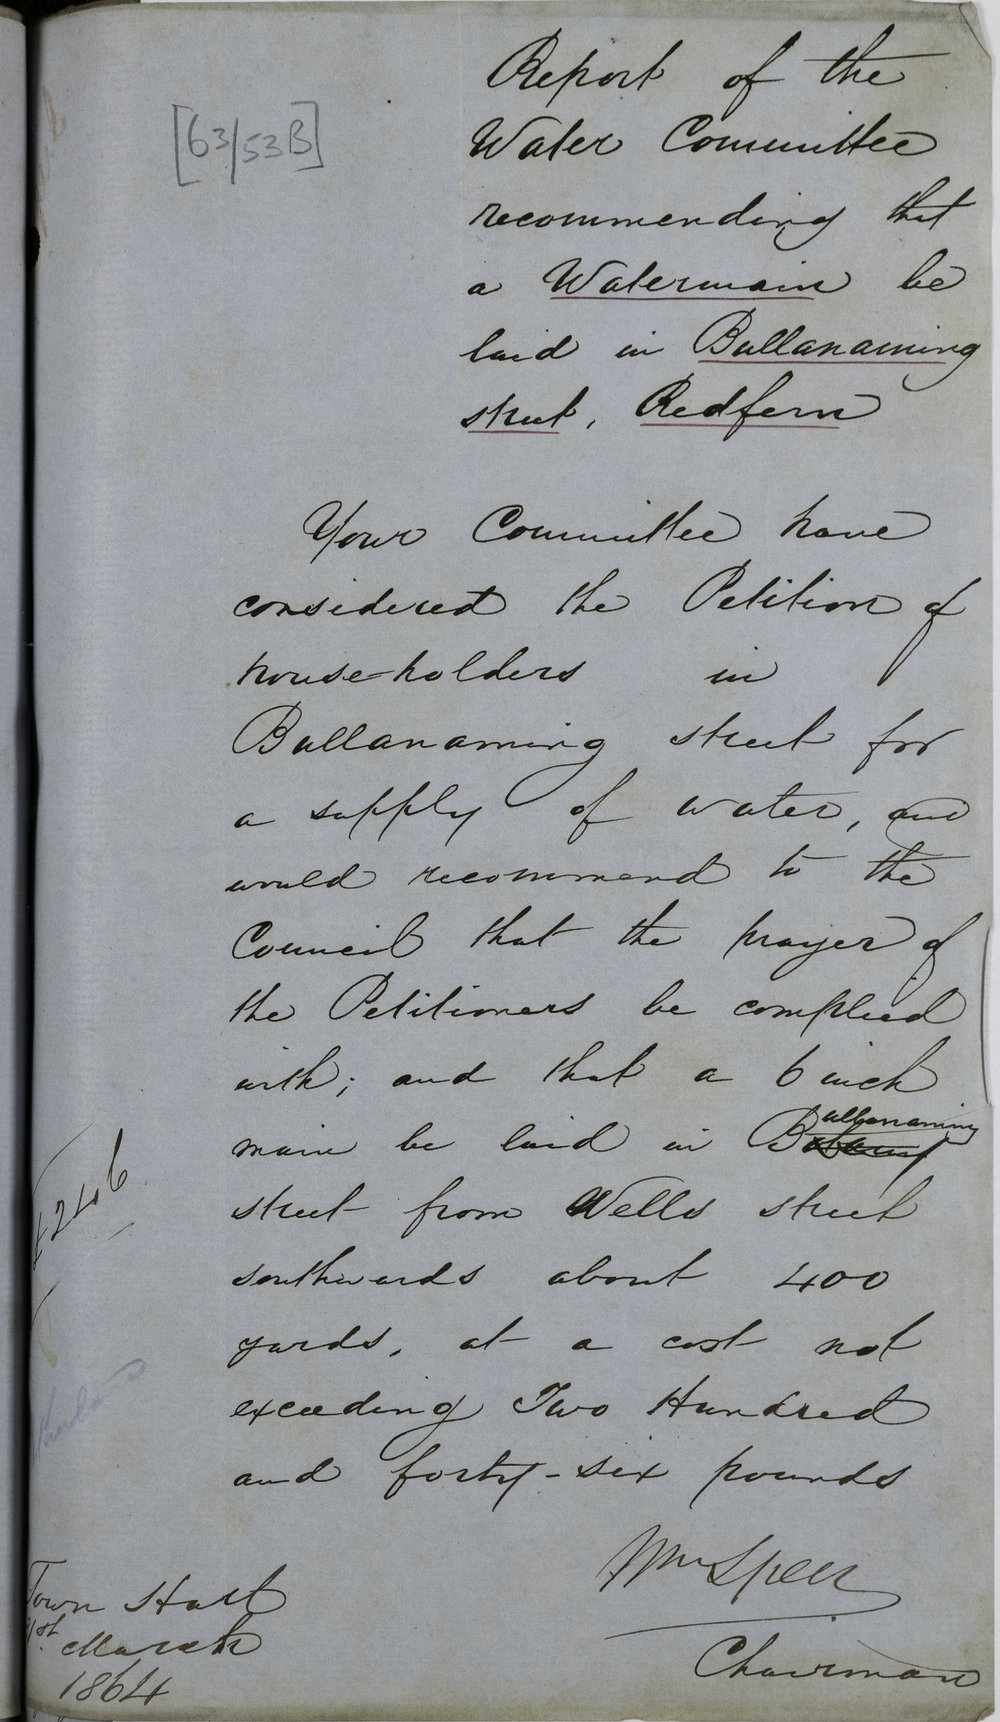 [63/53B]
Report of the
Water Committee
recommending that
a Watermain be
laid in Ballanaming
street, Redfern
Your Committee have
considered the Petition of
house-holders in
Ballanaming street for
a supply of water, and
would recommend to the
Council that the prayer of
the Petitioners be complied
with; and that a 6 inch
main be laid in Ballanaming
street from Wells street
southwards about 400
yards, at a cost not
exceeding Two Hundred
and forty-six pounds
£246
Wm Speer
Chairman
Town Hall
March
1864